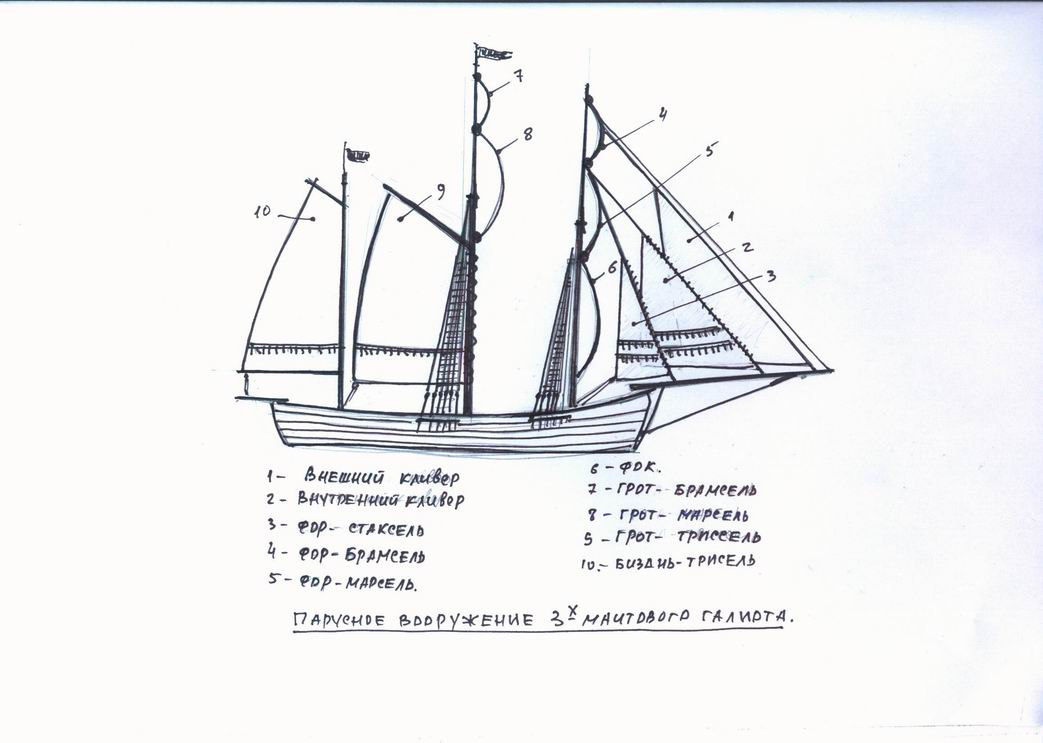 7
4
8
5
9
10
1
2
6
3
1- ВНЕШНИЙ КЛИВЕР
2- ВНУТРЕННИЙ КЛИВЕР
3- ФОР- СТАКСЕЛЬ
4- ФОР-БРАМСЕЛЬ
5- ФОР-МАРСЕЛЬ.
6 - ФОК.
7 - ГРОТ- БРАМСЕЛЬ
8 - ГРОТ- МАРСЕЛЬ
9 - ГРОТ- ТРИССЕЛЬ
10.- БИЗАНЬ-ТРИСЕЛЬ
ПАРУСНОЕ ВООРУЖЕНИЕ 3х МАЧТОВОГО ГАЛИОТА.